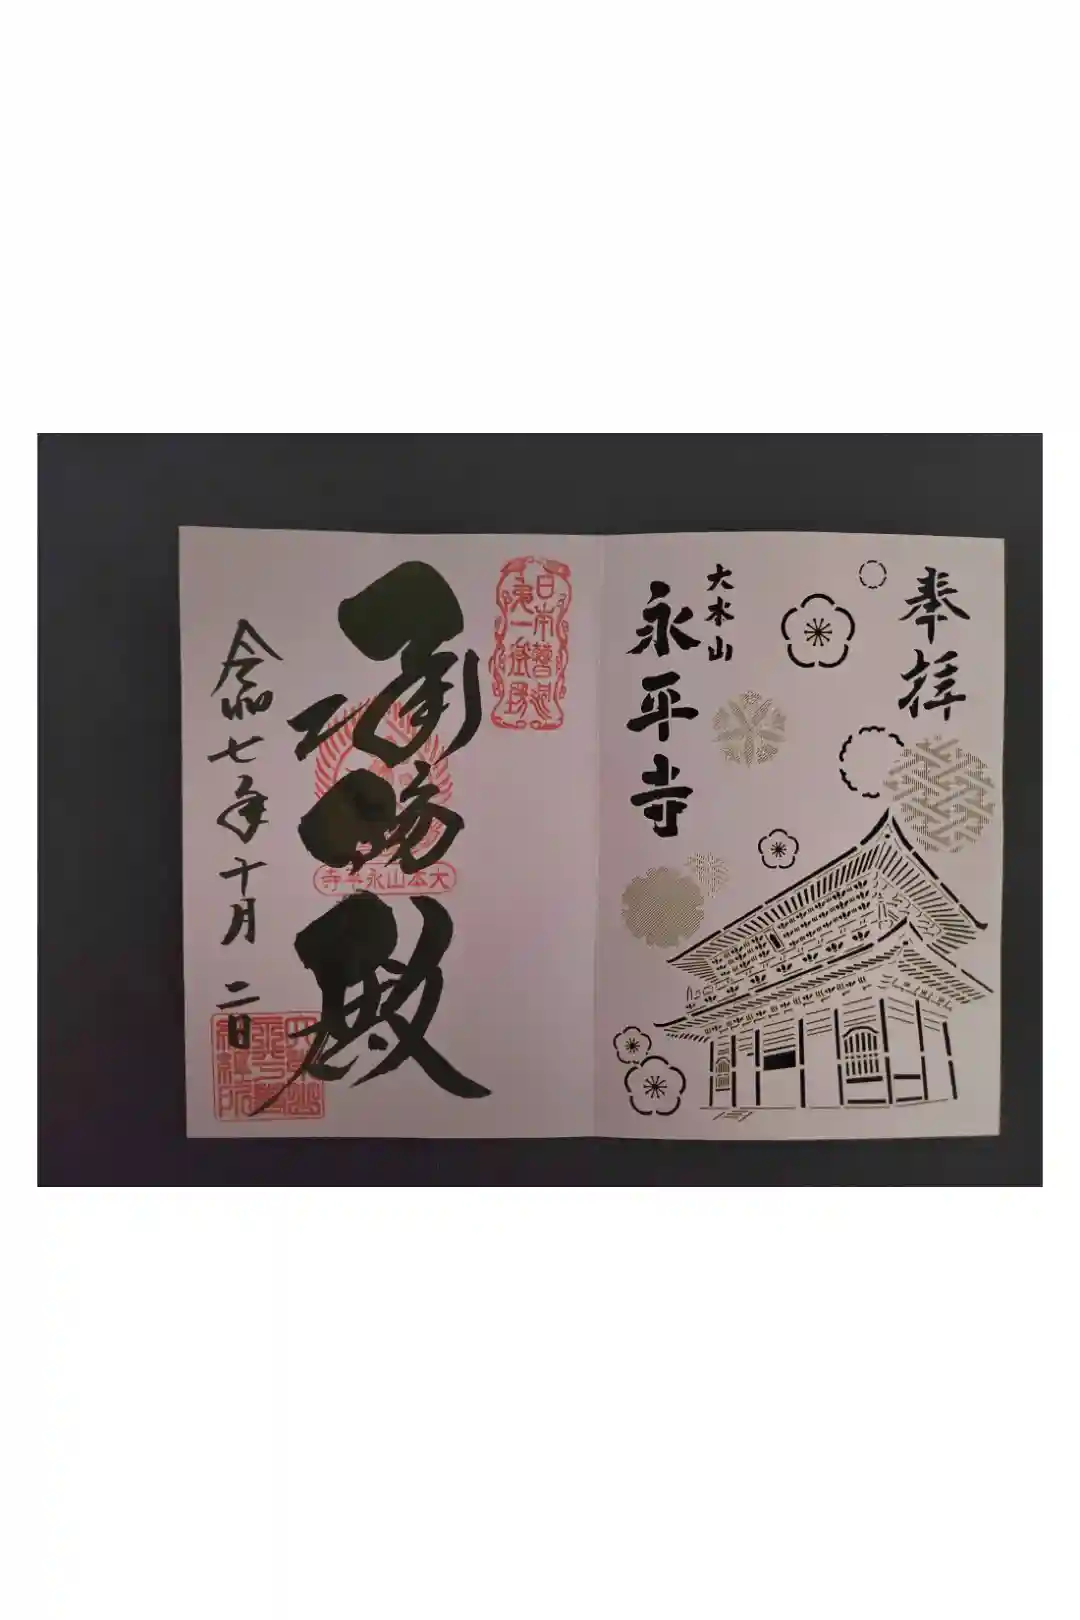 奉拝
大本山
永平寺
日本曹洞
第一道場
承陽殿
大本山永平寺
令和七年十月二日